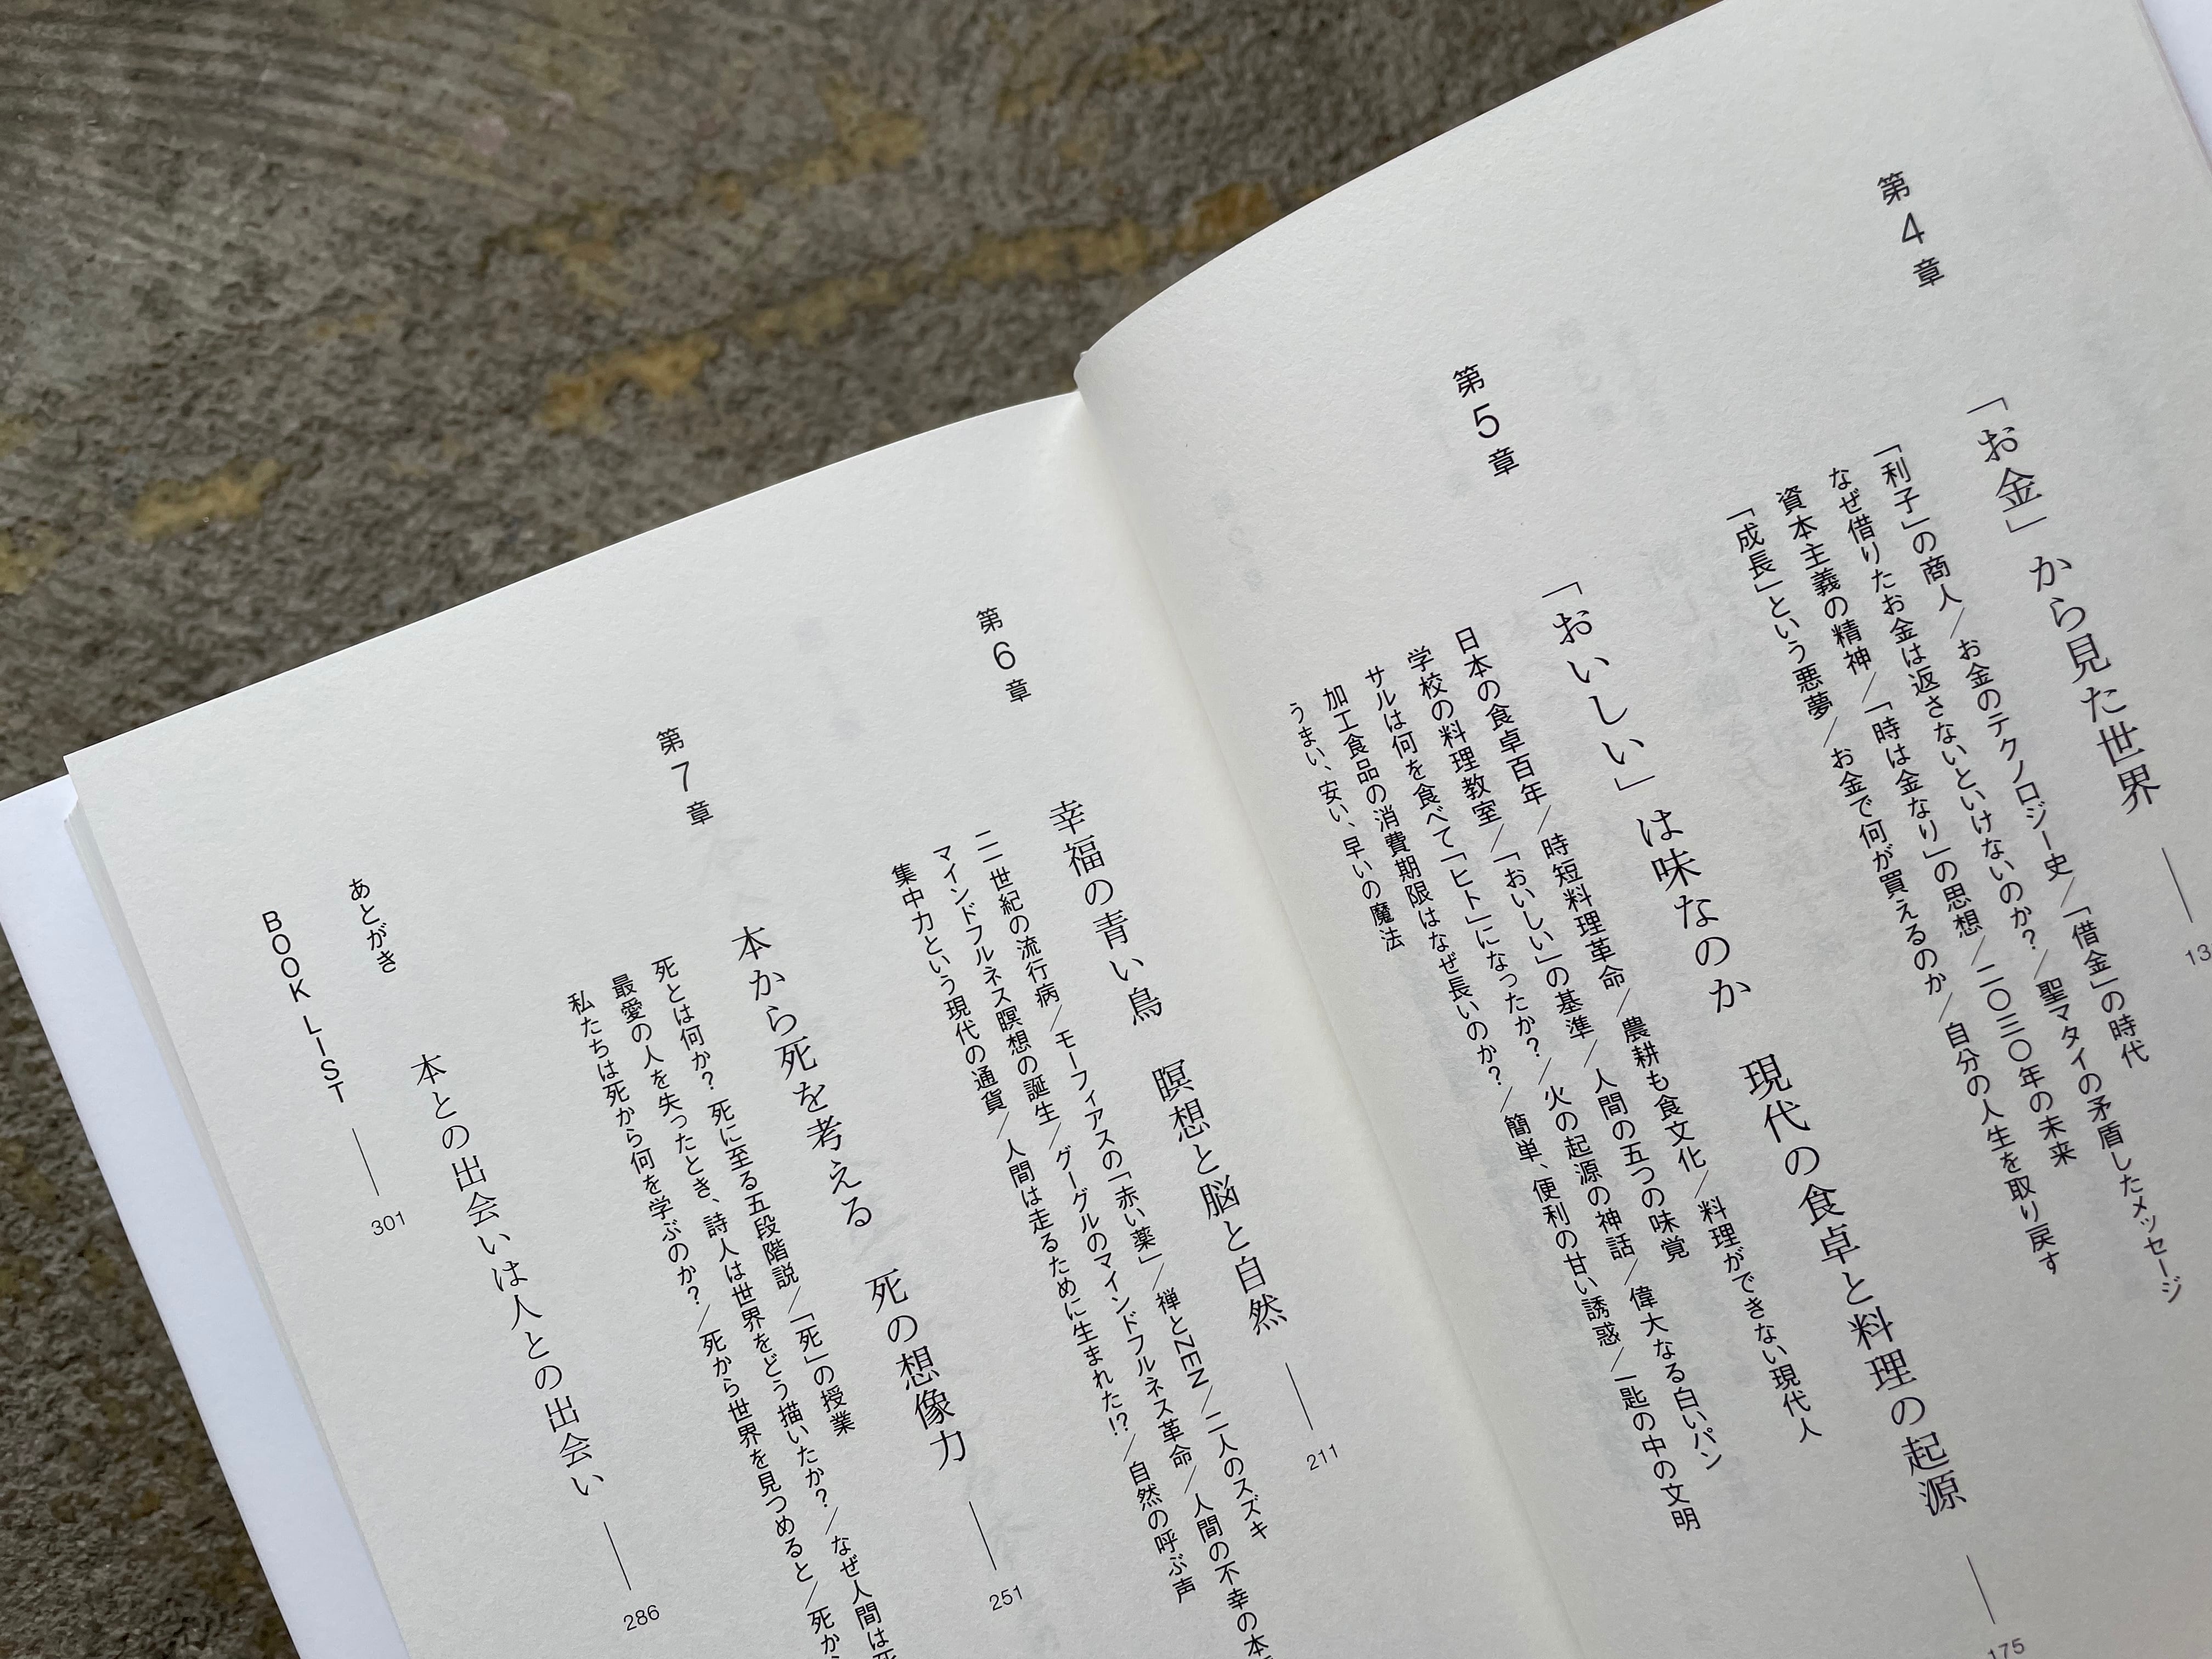 第4章
「お金」から見た世界 ── 13
「利子」の商人/お金のテクノロジー史/「借金」の時代
なぜ借りたお金は返さないといけないのか?/聖マタイの矛盾したメッセージ
資本主義の精神/「時は金なり」の思想/二〇三〇年の未来
「成長」という悪夢/お金で何が買えるのか/自分の人生を取り戻す
第5章
「おいしい」は味なのか 現代の食卓と料理の起源 ── 175
日本の食卓百年/時短料理革命/農耕も食文化/料理ができない現代人
学校の料理教室/「おいしい」の基準/人間の五つの味覚
サルは何を食べて「ヒト」になったか?/火の起源の神話/偉大なる白いパン
加工食品の消費期限はなぜ長いのか?/簡単、便利の甘い誘惑/一匙の中の文明
うまい、安い、早いの魔法
第6章
幸福の青い鳥 瞑想と脳と自然 ── 211
二一世紀の流行病/モーフィアスの「赤い薬」/禅とZEN/二人のスズキ
マインドフルネス瞑想の誕生/グーグルのマインドフルネス革命/人間の不幸の本
集中力という現代の通貨/人間は走るために生まれた!?/自然の呼ぶ声
第7章
本から死を考える 死の想像力 ── 251
死とは何か? 死に至る五段階説/「死」の授業
最愛の人を失ったとき、詩人は世界をどう描いたか?/なぜ人間は死
私たちは死から何を学ぶのか?/死から世界を見つめると/死か
あとがき
本との出会いは人との出会い ── 286
BOOK LIST ── 301